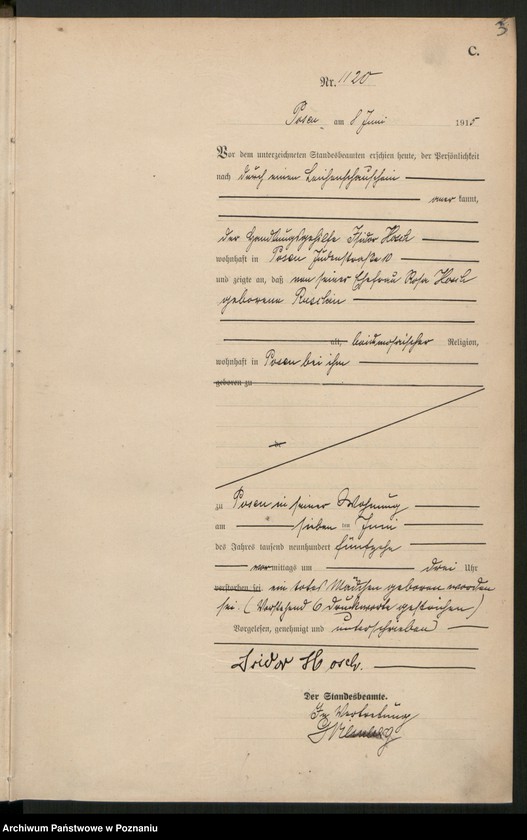 3
C.
Nr. 1120
Posen, am 8 Juni 1915
Vor dem unterzeichneten Standesbeamten erschien heute, der Persönlichkeit
nach durch einen Leichenschauschein
aner kannt,
der Handlungsgehilfe Isidor Hosch
wohnhaft in Posen Judenstraße 10
und zeigte an, daß von seiner Ehefrau Rosa Hosch
geborene
alt, beide mosaischer Religion,
wohnhaft in Posen bei ihm
geboren zu
de
zu Posen in seiner Wohnung
am sieben ten Juni
des Jahres tausend neunhundert fünfzehn
vor mittags um drei Uhr
verstorben sei ein totes Mädchen geboren worden
sei. (Vorstehend 6 Druckworte gestrichen)
Vorgelesen, genehmigt und unterschrieben
Isidor Hosch.
Der Standesbeamte.
In Vertretung
Archiwum Państwowe w Poznaniu